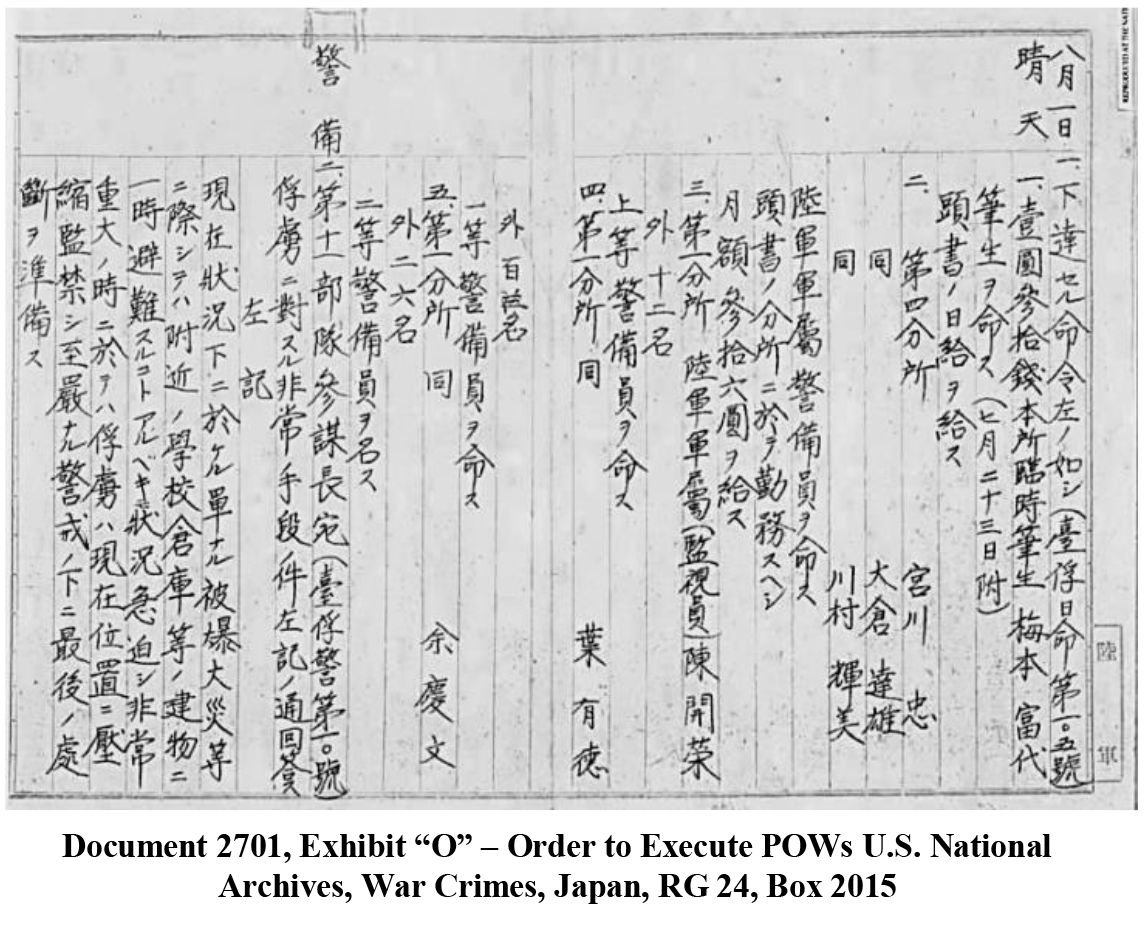 八月一日
晴天
一、下達セル命令左ノ如シ(臺俘日命第一〇五號)
一、壹圓參拾錢本所臨時筆生 梅本 富代
筆生ヲ命ス(七月二十三日附)
頭書ノ日給ヲ給ス
二、第四分所 宮川 忠
同 大倉 達雄
同 川村 輝美
陸軍軍屬警備員ヲ命ス
頭書ノ分所ニ於テ勤務スヘシ
月額參拾六圓ヲ給ス
三、第一分所 陸軍軍屬(監視員)陳 開 榮
外 十二名
上等警備員ヲ命ス
四、第一分所 同 葉 有 德
外 名
一等警備員ヲ命ス
五、第一分所 同 余 慶 文
外 二六名
二等警備員ヲ名ス
警備
二、第十一部隊參謀長宛(臺俘警第一〇號)
俘虜ニ對スル非常手段件左記ノ通回答
左記
現在狀況下ニ於ケル單ナル被爆大災等
ニ際シテハ附近ノ學校倉庫等ノ建物ニ
一時避難スルコトアルベキ狀況急迫シ非常
重大ノ時ニ於テハ俘虜ハ現在位置ニ壓
縮監禁シ至嚴ナル警戒ノ下ニ最後ノ處
斷ヲ準備ス
陸軍
Document 2701, Exhibit “O” – Order to Execute POWs U.S. National
Archives, War Crimes, Japan, RG 24, Box 2015